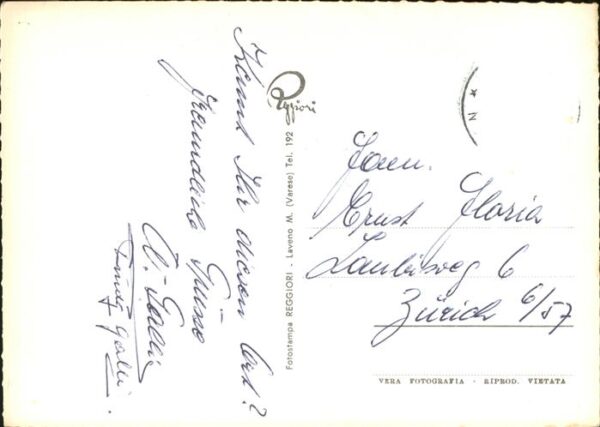 Kennt Ihr diesen Ort?
Freundliche Grüsse
Galli
Galli.
Reggiori
Fotostampa REGGIORI - Laveno M. (Varese) Tel. 192
Fam.
Ernst Floria
6
Zürich 6/57
VERA FOTOGRAFIA - RIPROD. VIETATA
N *